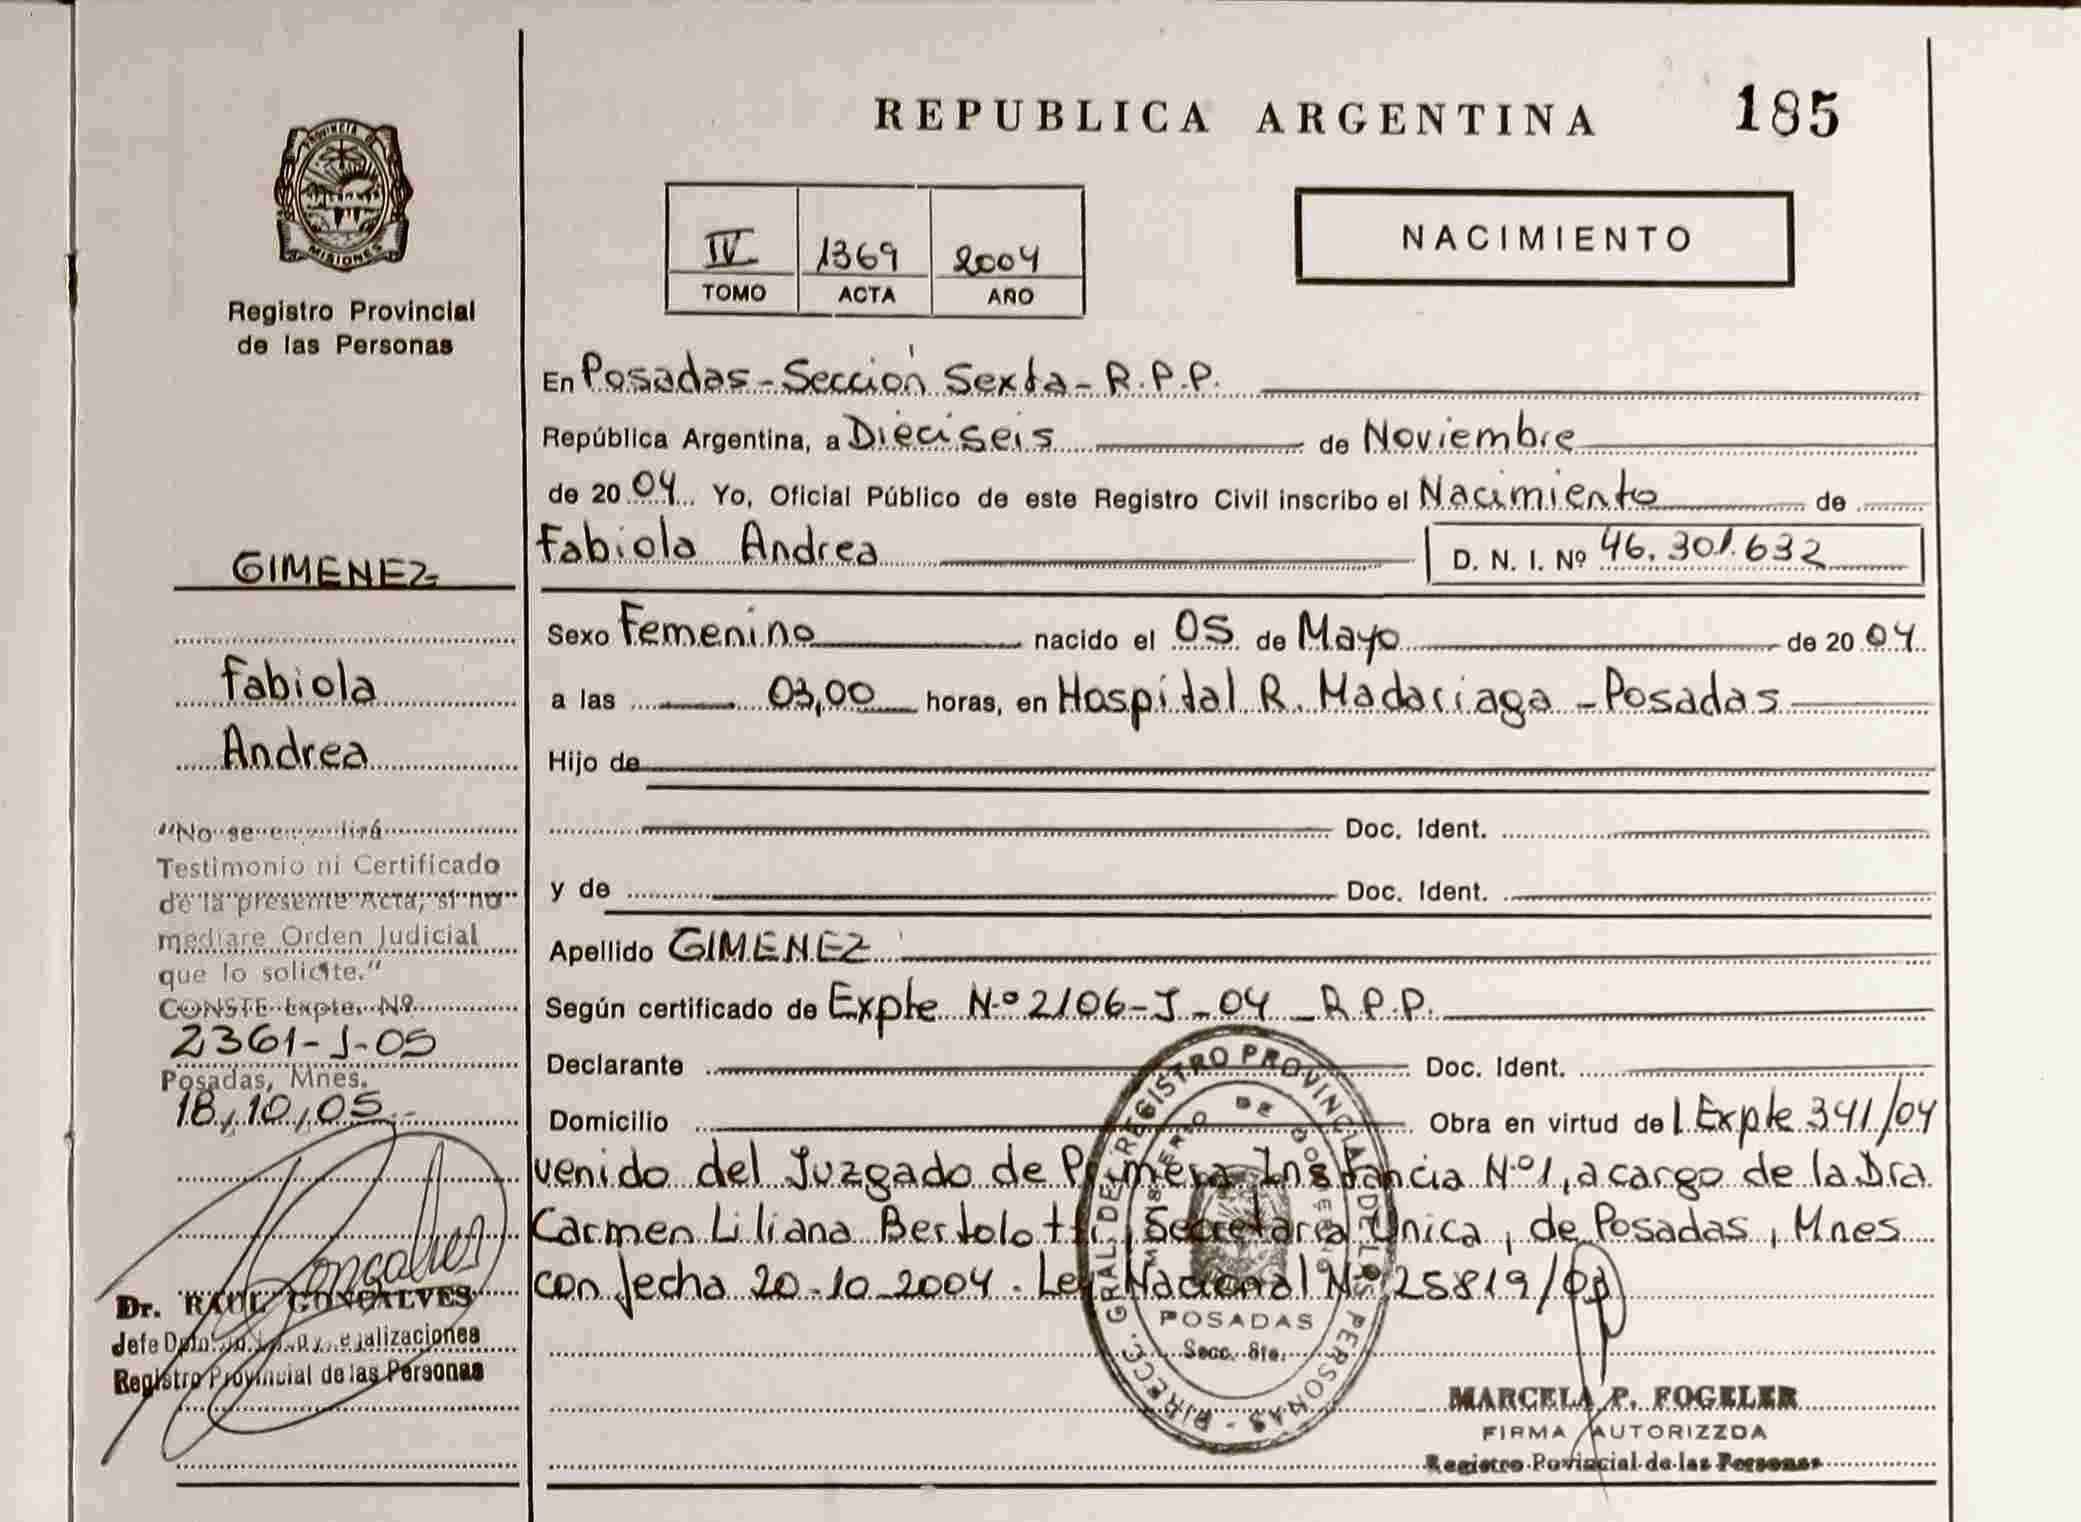 REPUBLICA ARGENTINA 185
PROVINCIA DE
MISIONES
Registro Provincial
de las Personas
IV 1369 2004
TOMO ACTA AÑO
NACIMIENTO
En Posadas - Sección Sexta - R.P.P.
República Argentina, a Dieciseis de Noviembre
de 20 04 Yo, Oficial Público de este Registro Civil inscribo el Nacimiento de
Fabiola Andrea D. N. I. Nº 46.301.632
Sexo Femenino nacido el 05 de Mayo de 20 04
a las 03,00 horas, en Hospital R. Madariaga - Posadas
Hijo de
Doc. Ident.
y de Doc. Ident.
Apellido GIMENEZ
Según certificado de Expte Nº 2106-J-04 R.P.P.
Declarante Doc. Ident.
Domicilio Obra en virtud del Expte 341/04
venido del Juzgado de Primera Instancia Nº1, a cargo de la Dra
Carmen Liliana Bertolotti, Secretaria Unica, de Posadas, Mnes
con fecha 20-10-2004. Ley Nacional Nº 25819/03
GIMENEZ
Fabiola
Andrea
"No se expedirá
Testimonio ni Certificado
de la presente Acta, si no
mediare Orden Judicial
que lo solicite."
CONSTE Expte. Nº
2361-J-05
Posadas, Mnes.
18,10,05.-
Goncalves
Dr. RAUL GONCALVES
Jefe Dpto.
Registro Provincial de las Personas
DIRECC. GRAL. DEL REGISTRO PROVINCIAL DE LAS PERSONAS
MINISTERIO DE GOBIERNO
POSADAS
Secc. 6ta.
MARCELA P. FOGELER
FIRMA AUTORIZZDA
Registro Povincial de las Personas